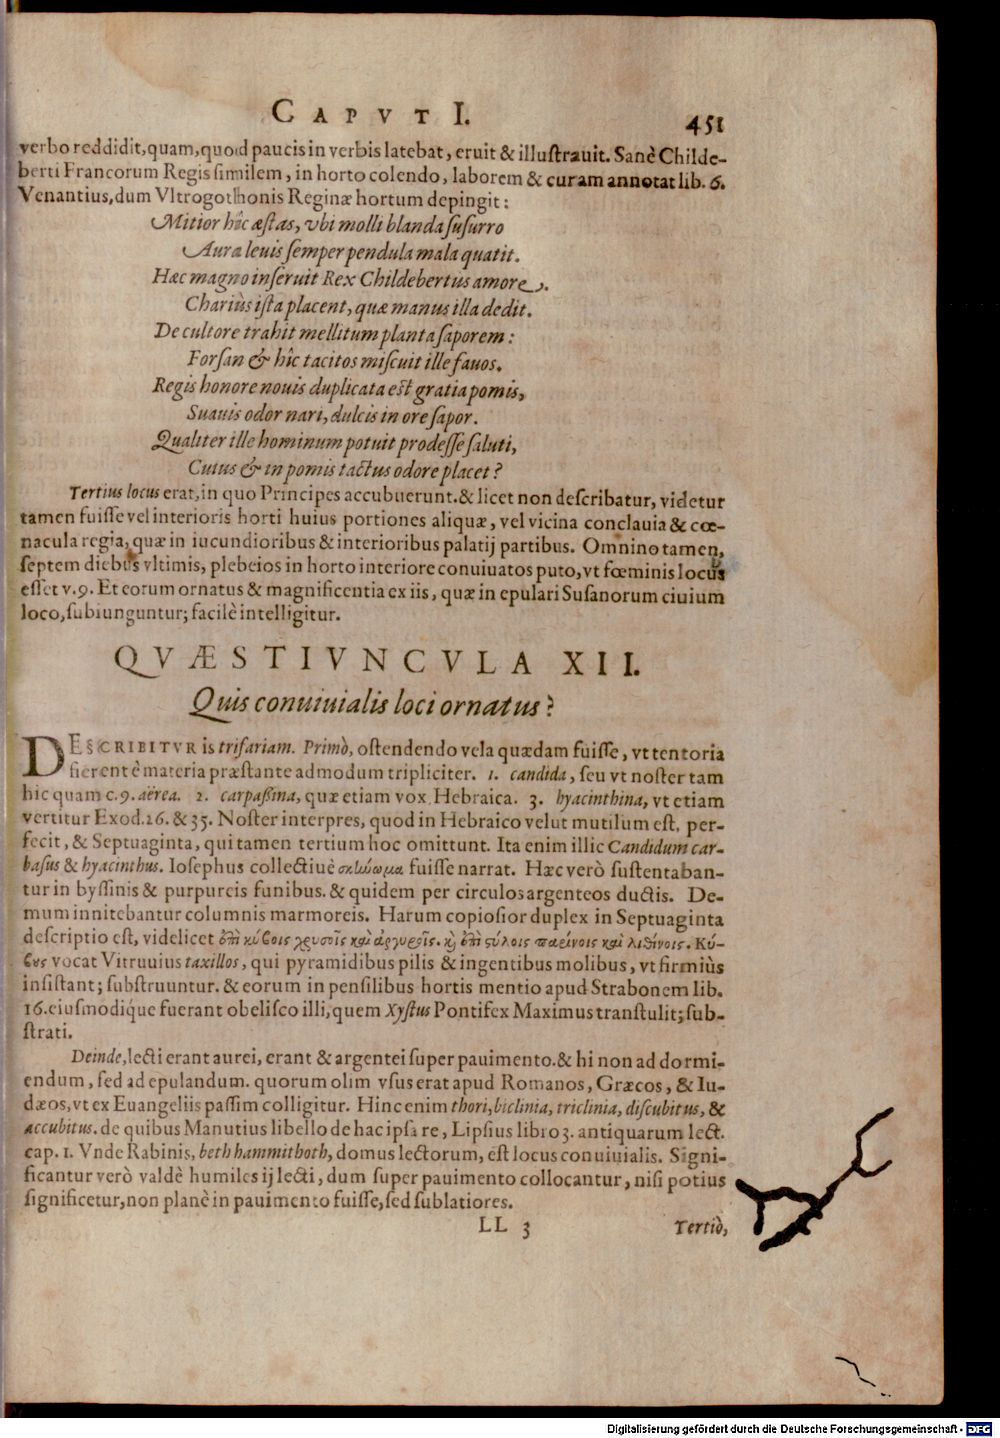 CAPVT I. 451
verbo reddidit, quam, quod paucis in verbis latebat, eruit & illustrauit. Sanè Childe-
berti Francorum Regis similem, in horto colendo, laborem & curam annotat lib. 6.
Venantius, dum Vltrogothonis Reginæ hortum depingit:
Mitior hîc æstas, vbi molli blanda susurro
Aura leuis semper pendula mala quatit.
Hæc magno inseruit Rex Childebertus amore.
Chariùs ista placent, quæ manus illa dedit.
De cultore trahit mellitum planta saporem:
Forsan & hîc tacitos miscuit ille fauos.
Regis honore nouis duplicata est gratia pomis,
Suauis odor nari, dulcis in ore sapor.
Qualiter ille hominum potuit prodesse saluti,
Cuius & in pomis tactus odore placet?
Tertius locus erat, in quo Principes accubuerunt. & licet non describatur, videtur
tamen fuisse vel interioris horti huius portiones aliquæ, vel vicina conclauia & cœ-
nacula regia, quæ in iucundioribus & interioribus palatij partibus. Omnino tamen,
septem diebus vltimis, plebeios in horto interiore conuiuatos puto, vt fœminis locus
esset v. 9. Et eorum ornatus & magnificentia ex iis, quæ in epulari Susanorum ciuium
loco, subiunguntur; facilè intelligitur.
QVÆSTIVNCVLA XII.
Quis conuiuialis loci ornatus?
DESCRIBITVR is trifariam. Primò, ostendendo vela quædam fuisse, vt tentoria
fierent è materia præstante admodum tripliciter. 1. candida, seu vt noster tam
hic quam c. 9. aërea. 2. carpaßina, quæ etiam vox Hebraica. 3. hyacinthina, vt etiam
vertitur Exod. 26. & 35. Noster interpres, quod in Hebraico velut mutilum est, per-
fecit, & Septuaginta, qui tamen tertium hoc omittunt. Ita enim illic Candidum car-
basus & hyacinthus. Iosephus collectiuè σκλώωμα fuisse narrat. Hæc verò sustentaban-
tur in byssinis & purpureis funibus. & quidem per circulos argenteos ductis. De-
mum innitebantur columnis marmoreis. Harum copiosior duplex in Septuaginta
descriptio est, videlicet ἐπὶ κύβοις χρυσοῖς καὶ ἀργυροῖς. καὶ ἐπὶ στύλοις παρίνοις καὶ λιθίνοις. Κύ-
βους vocat Vitruuius taxillos, qui pyramidibus pilis & ingentibus molibus, vt firmiùs
insistant; substruuntur. & eorum in pensilibus hortis mentio apud Strabonem lib.
16. eiusmodíque fuerant obelisco illi, quem Xystus Pontifex Maximus transtulit; sub-
strati.
Deinde, lecti erant aurei, erant & argentei super pauimento. & hi non ad dormi-
endum, sed ad epulandum. quorum olim vsus erat apud Romanos, Græcos, & Iu-
dæos, vt ex Euangeliis passim colligitur. Hinc enim thori, biclinia, triclinia, discubitus, &
accubitus. de quibus Manutius libello de hac ipsa re, Lipsius libro 3. antiquarum lect.
cap. 1. Vnde Rabinis, beth hammithoth, domus lectorum, est locus conuiuialis. Signi-
ficantur verò valdè humiles ij lecti, dum super pauimento collocantur, nisi potius
significetur, non planè in pauimento fuisse, sed sublatiores.
LL 3 Tertiò,
Digitalisierung gefördert durch die Deutsche Forschungsgemeinschaft - DFG